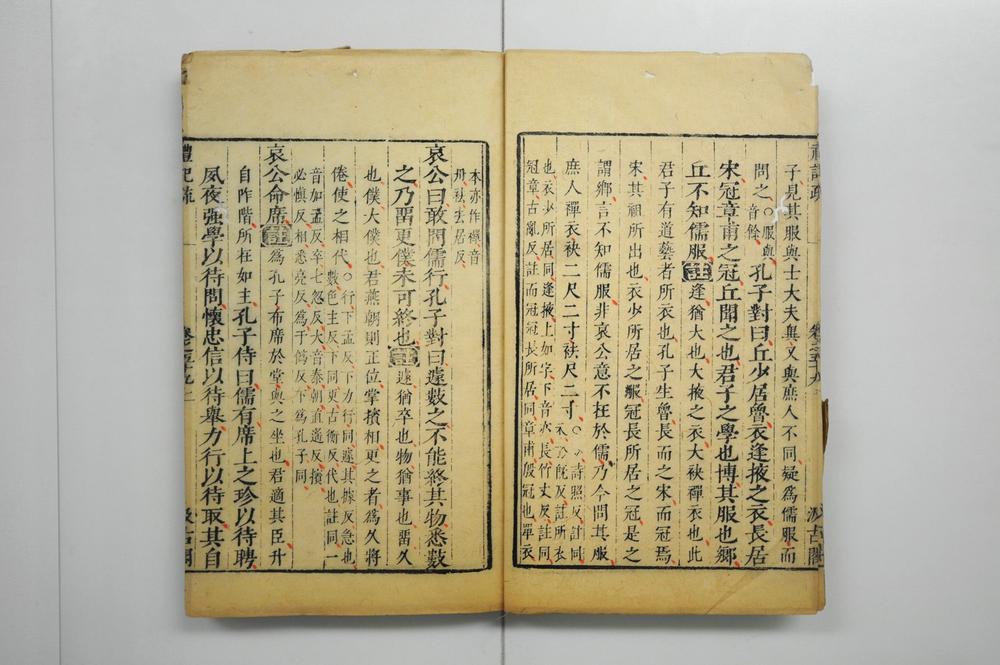 禮記疏
卷之五十九
汲古閣
子見其服與士大夫異又與庶人不同疑爲儒服而
問之
○服與
音餘
孔子對曰丘少居魯衣逢掖之衣長居
宋冠章甫之冠丘聞之也君子之學也博其服也鄉
丘不知儒服
註
逢猶大也大掖之衣大袂禪衣也此
君子有道藝者所衣也孔子生魯長而之宋而冠焉
宋其祖所出也衣少所居之服冠長所居之冠是之
謂鄉言不知儒服非哀公意不在於儒乃今問其服
庶人禪衣袂二尺二寸袪尺二寸
○少詩照反註同
衣於旣反註所衣
也衣少所居同逢掖上如字下音亦長竹丈反註同
冠章古亂反註而冠冠長所居同章甫殷冠也單衣
本亦作禪音
丹袪去居反
哀公曰敢問儒行孔子對曰遽數之不能終其物悉數
之乃留更僕未可終也
註
遽猶卒也物猶事也留久
也僕大僕也君燕朝則正位掌擯相更之者爲久將
倦使之相代
○行下孟反下力行同遽其據反急也
數色主反下同更古衡反代也註同一
音加孟反卒七忽反大音泰朝直遙反擯
必愼反相悉亮反爲于僞反下爲孔子同
哀公命席
註
爲孔子布席於堂與之坐也君適其臣升
自阼階所在如主
孔子侍曰儒有席上之珍以待聘
夙夜强學以待問懷忠信以待舉力行以待取其自
禮記疏
卷之五十九
二
汲古閣